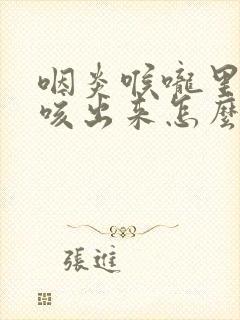 咽炎喉嚨里
咳出来怎麼
張進